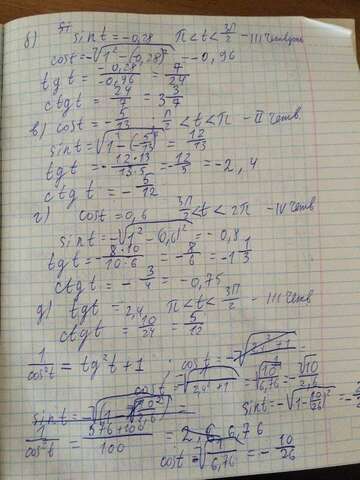 б) sin t = -0,28   π < t < 3π/2 - III четверть
cos t = -√(1² - (0,28)²) = -0,96
tg t = -0,28/-0,96 = 7/24
ctg t = 24/7 = 3 3/7
в) cos t = -5/13 ; π/2 < t < π - II четв
sin t = √(1 - (-5/13)²) = 12/13
tg t = -12·13/13·5 = -12/5 = -2,4
ctg t = -5/12
г) cos t = 0,6   3π/2 < t < 2π - IV четв
sin t = -√(1² - 0,6)² = -0,8
tg t = -8·10/10·6 = -8/6 = -1 1/3
ctg t = -3/4 = -0,75
д) tg t = 2,4   π < t < 3π/2 - III четв
ctg t = 10/24 = 5/12
1/cos²t = tg²t + 1 ;
1/cos²t = 576+100/100 = 6,76
cos t = √6,76 = -10/26